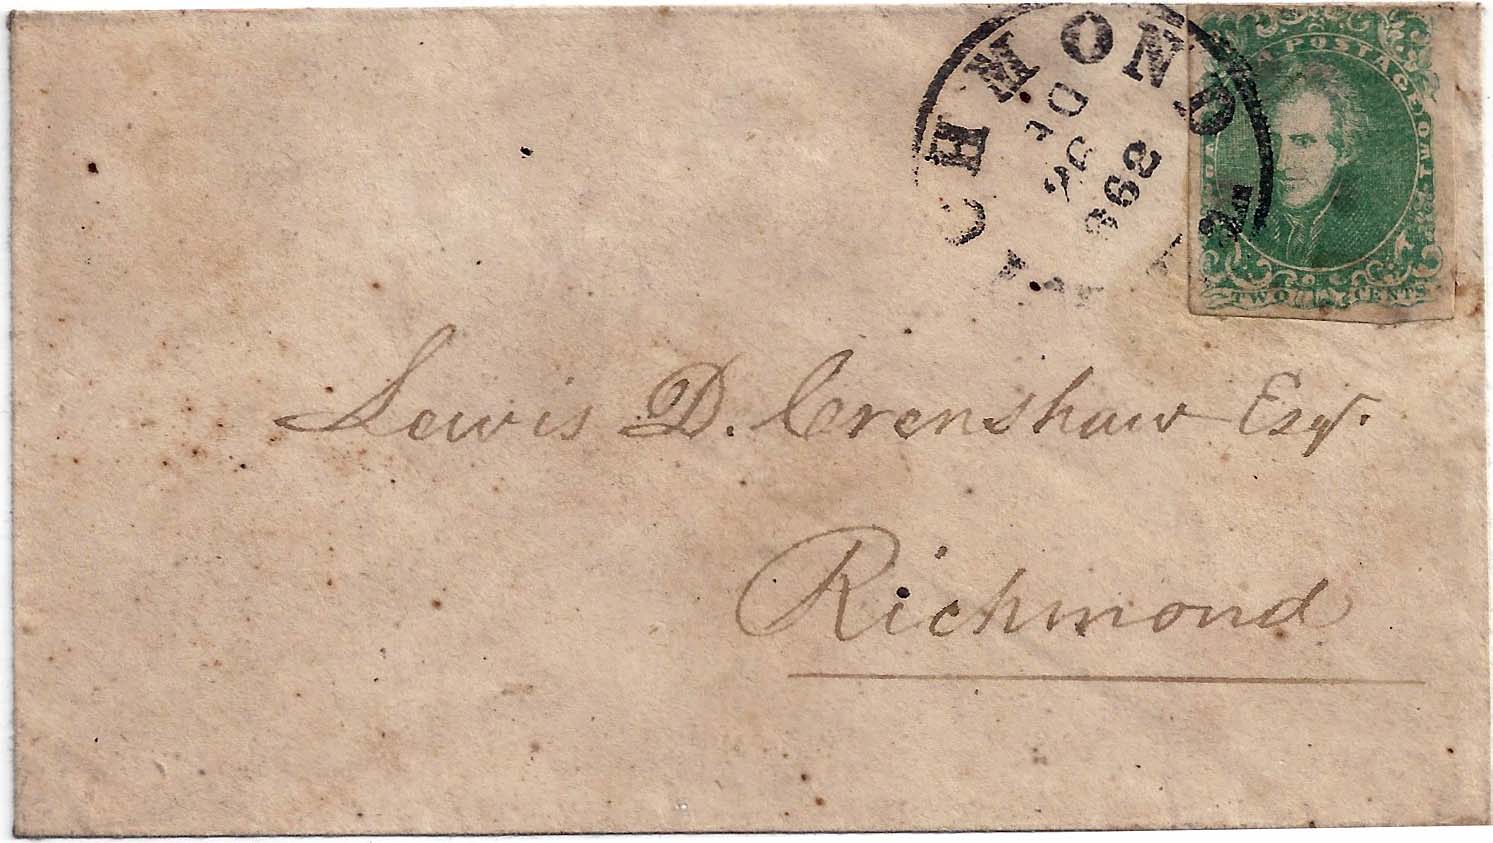 ICHMOND
VA
26
1862
POSTAGE
TWO CENTS
Lewis D. Crenshaw Esqr.
Richmond